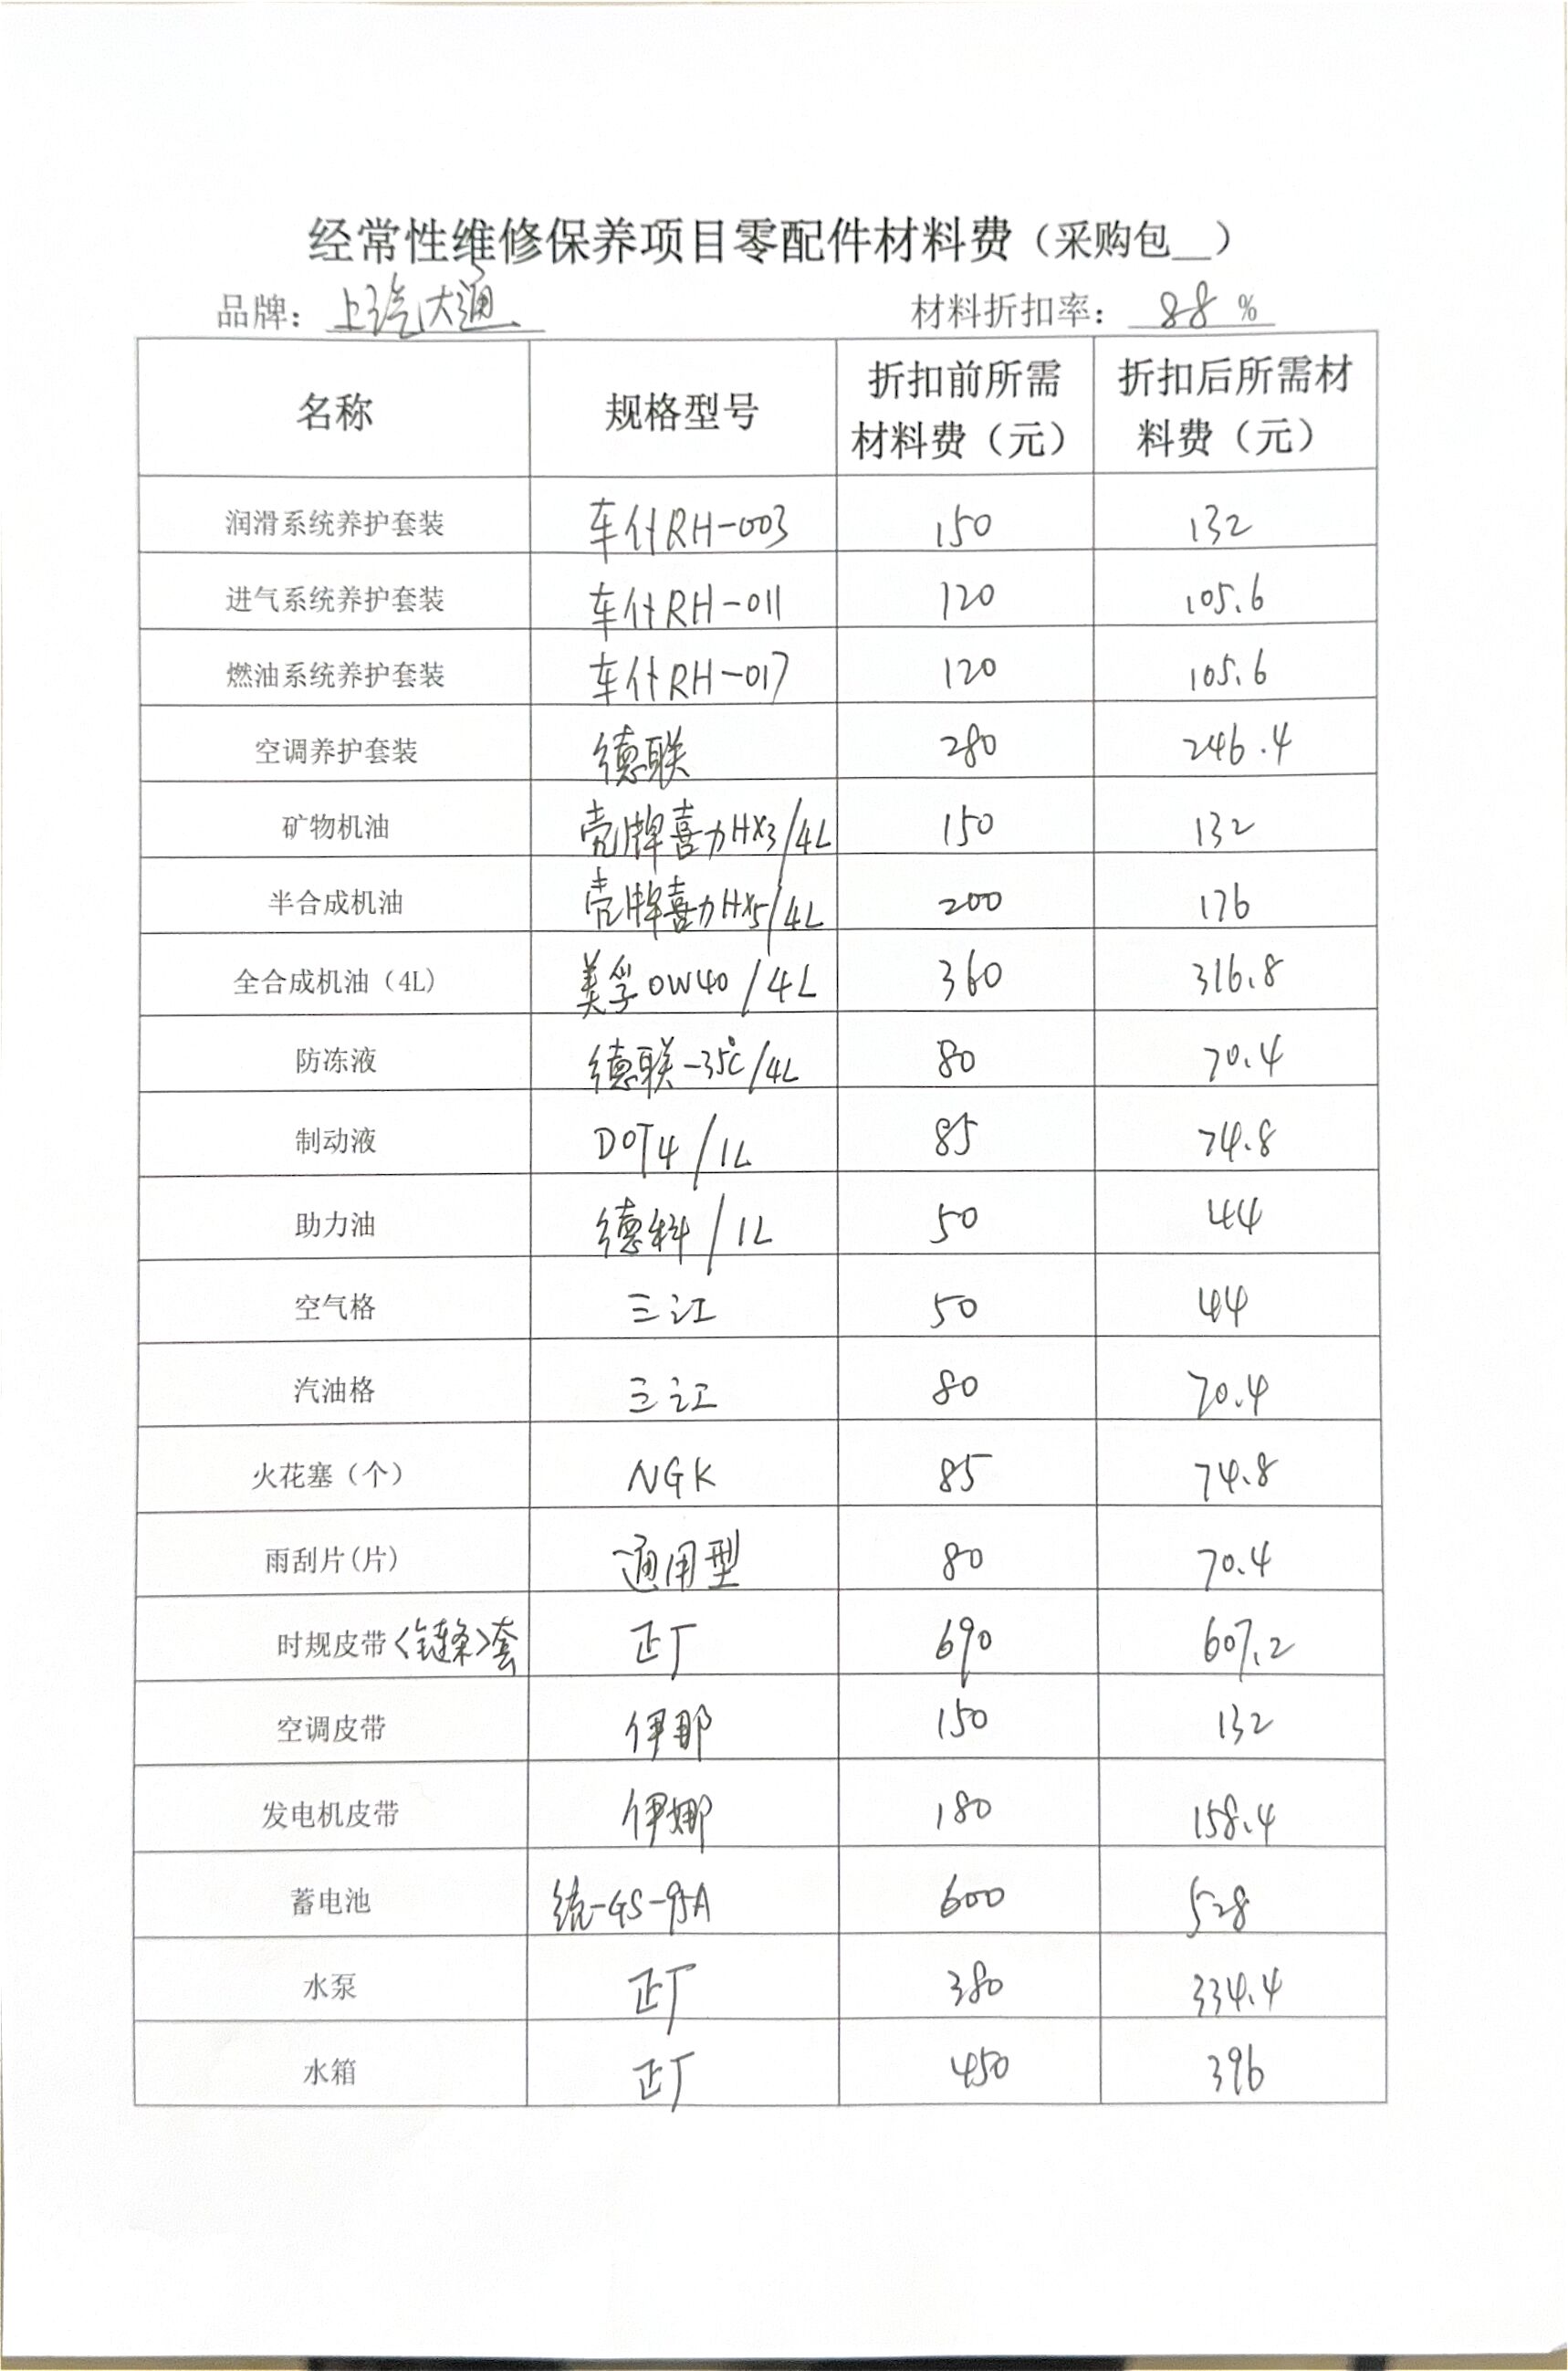 经常性维修保养项目零配件材料费（采购包__）
品牌：上汽大通 材料折扣率：88%
名称 规格型号 折扣前所需材料费（元） 折扣后所需材料费（元）
润滑系统养护套装 车仆RH-003 150 132
进气系统养护套装 车仆RH-011 120 105.6
燃油系统养护套装 车仆RH-017 120 105.6
空调养护套装 德联 280 246.4
矿物机油 壳牌喜力HX3/4L 150 132
半合成机油 壳牌喜力HX5/4L 200 176
全合成机油（4L） 美孚0W40/4L 360 316.8
防冻液 德联-35℃/4L 80 70.4
制动液 DOT4/1L 85 74.8
助力油 德科/1L 50 44
空气格 三江 50 44
汽油格 三江 80 70.4
火花塞（个） NGK 85 74.8
雨刮片(片) 通用型 80 70.4
时规皮带<链条>套 正厂 690 607.2
空调皮带 伊那 150 132
发电机皮带 伊娜 180 158.4
蓄电池 统一GS-95A 600 528
水泵 正厂 380 334.4
水箱 正厂 450 396